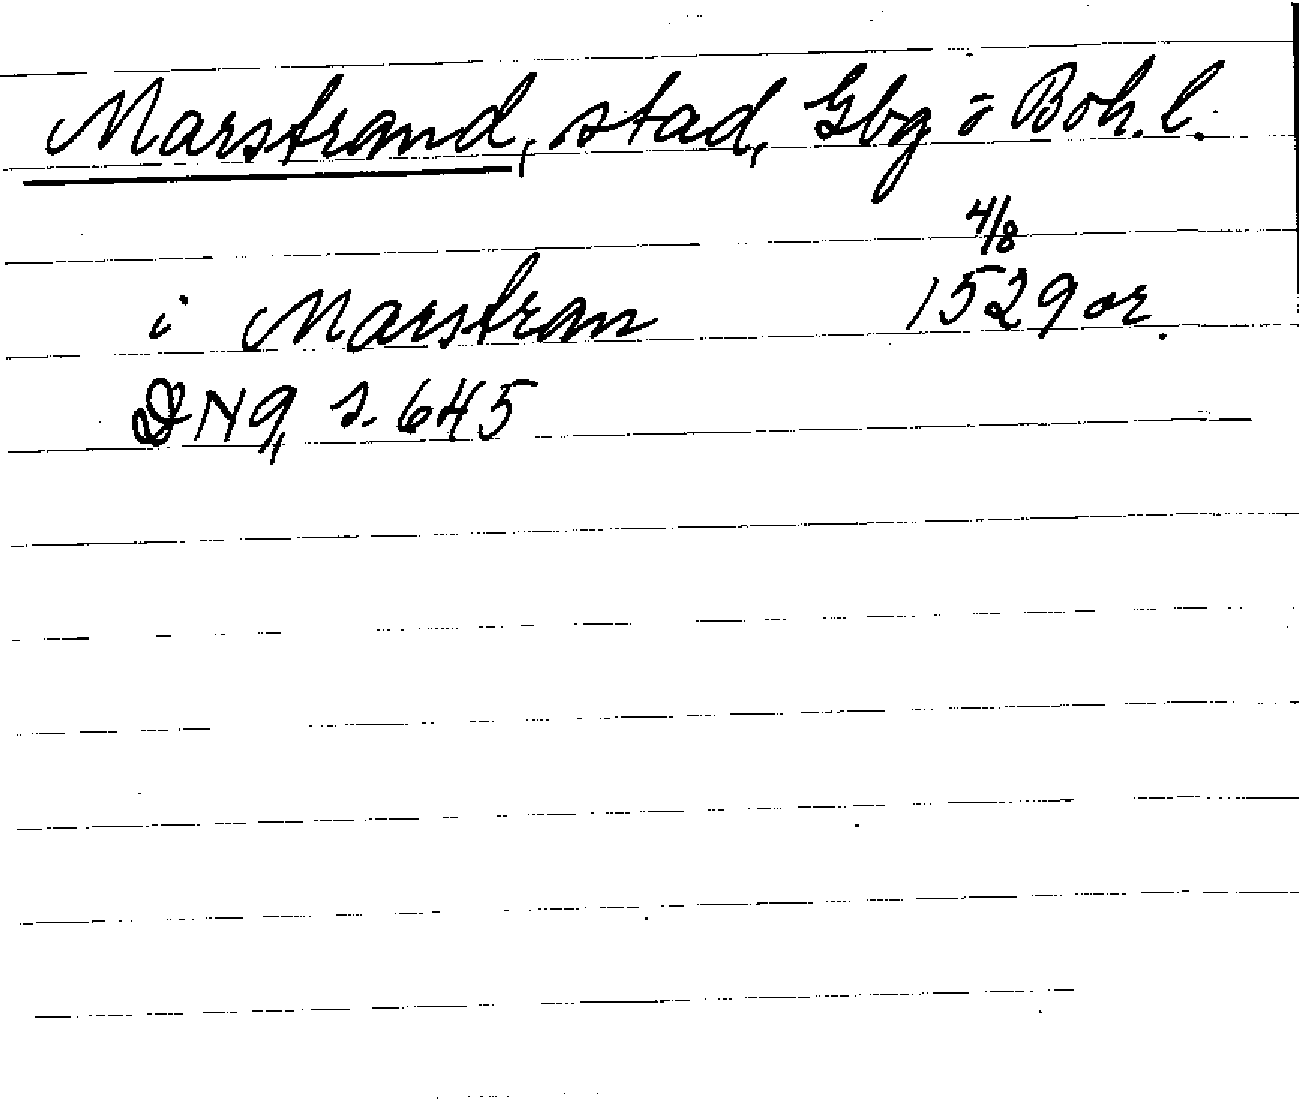 Marstrand, stad, Gbg o Boh. l.
4/8
i Marstran 1529 or.
DN9, s. 645